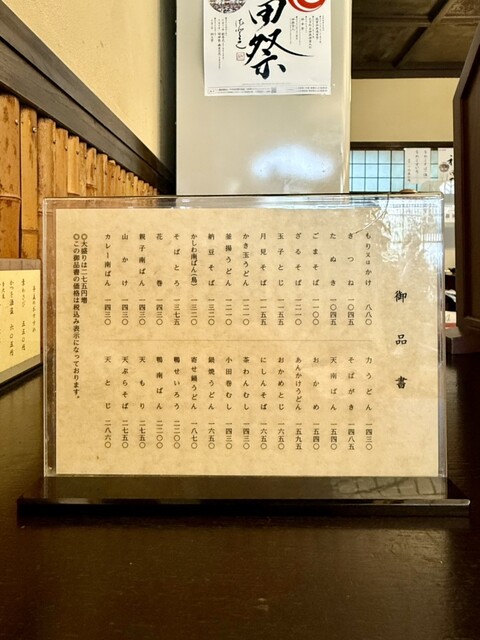 田祭
御品書
もり又はかけ 八八〇
きつね 一〇四五
たぬき 一〇四五
ごまそば 一一〇〇
ざるそば 一一〇〇
玉子とじ 一一五五
月見そば 一一五五
かき玉うどん 一二一〇
釜揚うどん 一二一〇
納豆そば 一三二〇
かしわ南ばん(鳥) 一三二〇
そばとろ 一三七五
花巻 一四三〇
親子南ばん 一四三〇
山かけ 一四三〇
カレー南ばん 一四三〇
力うどん 一四三〇
そばがき 一四八五
天南ばん 一五四〇
おかめ 一五四〇
あんかけうどん 一五九五
おかめとじ 一六五〇
にしんそば 一六五〇
茶わんむし 一四三〇
小田巻むし 一四三〇
鍋焼うどん 一六五〇
寄せ鍋うどん 一八七〇
鴨せいろう 二二〇〇
鴨南ばん 二二〇〇
天もり 二七五〇
天ぷらそば 二七五〇
天とじ 二八六〇
◎大盛りは二七五円増
◎この御品書の価格は税込み表示になっております。